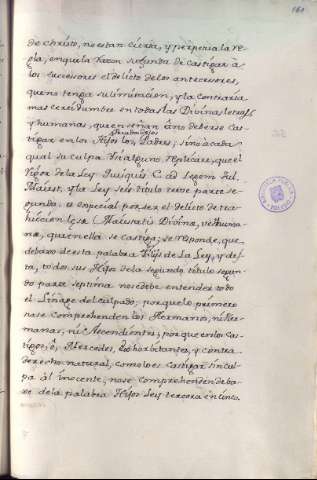 161
de christo, no es tan cierta, y perpetua la re
gla, en que la razon segunda de castigar à
los successores el delicto de los antecessores,
que no tenga su limitacion, y la contraria
mas certidumbre en todas las Divinas letras
y humanas, que enseñan âno deberse cas
tigar en los Hijos los Padres; sino à cada
qual su culpa. Si alguno replicare, que el
rigor de la Ley quisquis C. ad Legem Jul.
Maiest. y la Ley seis titulo trece parte se
gunda. especial por ser el delicto de tra
hicion Maiestatis Divinæ, humana
na, quien ella se castiga; se responde, que
debaxo de esta palabra Hijos de la Ley, y de
ta, todos sus Hijos de la segunda titulo segun
do parte septima no se debe entender todo
el Linage del culpado; porque lo primero
no se comprehenden los Hermanos, ni Her
manas, ni Ascendientes; porque en los cas
tigos, ò Mercedes, exhorbitantes, y contra
derecho natural, como es castigar sin cul
pa àl inocente, no se comprehenden deba
xo de la palabra Hijos Ley tercera en cinco